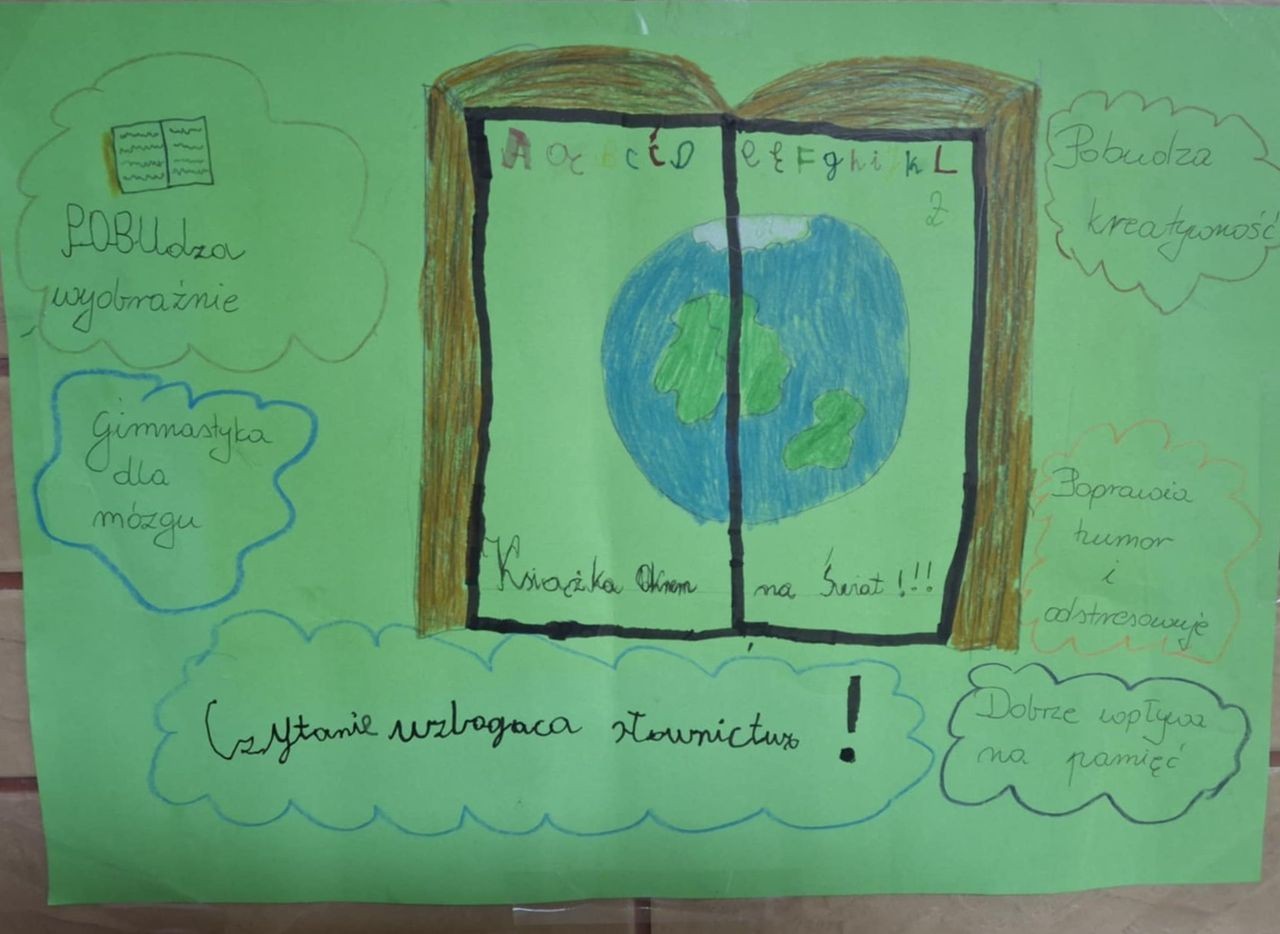 POBUdza
wyobraźnie
Gimnastyka
dla
mózgu
A Ą b c Ć D e Ę F g h i k L
Ż
Książka Oknem na Świat!!!
Pobudza
kreatywność
Poprawia
humor
i
odstresowuje
Czytanie wzbogaca słownictwo!
Dobrze wpływa
na pamięć